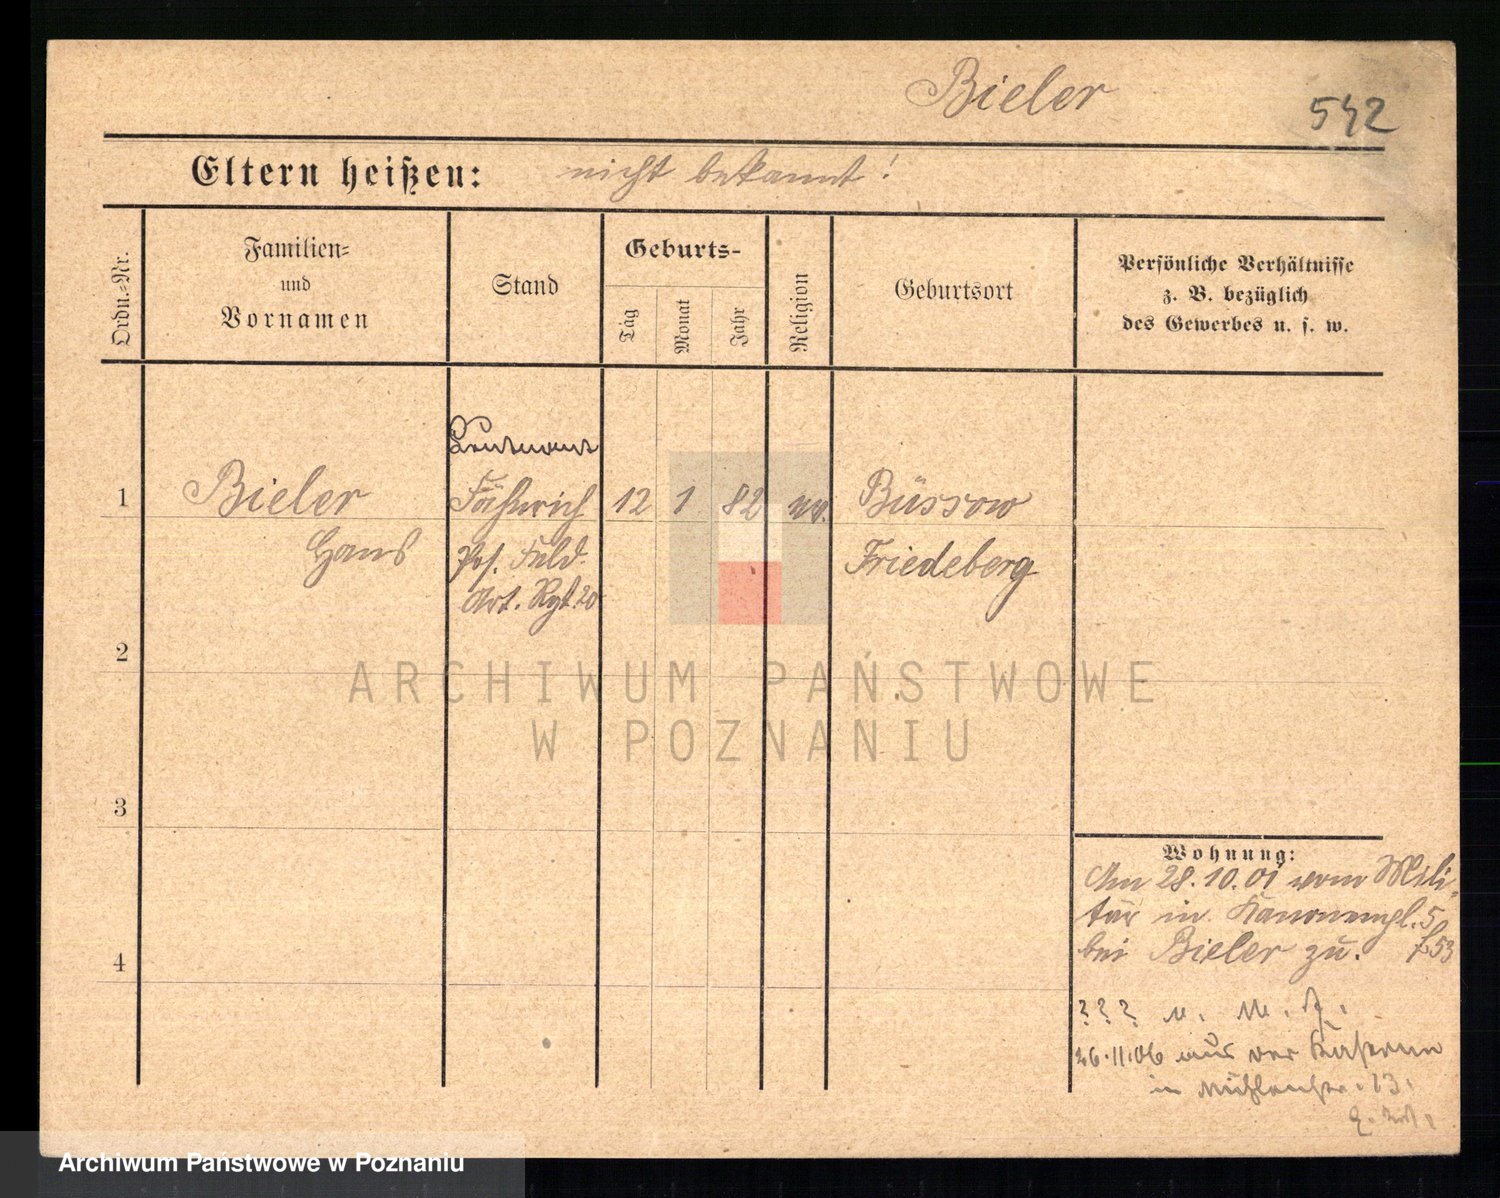 Bieler
542
Eltern heißen: nicht bekannt!
Ordn.-Nr.
Familien-
und
Vornamen
Stand
Geburts-
Tag
Monat
Jahr
Religion
Geburtsort
Persönliche Verhältnisse
z. B. bezüglich
des Gewerbes u. s. w.
Leutnant
1 Bieler Fähnrich 12 1 82 ev. Büssow
Hans Pos. Feld- Friedeberg
Art. Rgt. 20
2
3
4
Wohnung:
Am 28.10.01 vom Mili-
tär in Kanonenpl. 5
bei Bieler zu. f 53
??? u. M. F.
26.11.06 aus der Kaserne
in Mühlenstr. 13.
ARCHIWUM PAŃSTWOWE
W POZNANIU
Archiwum Państwowe w Poznaniu